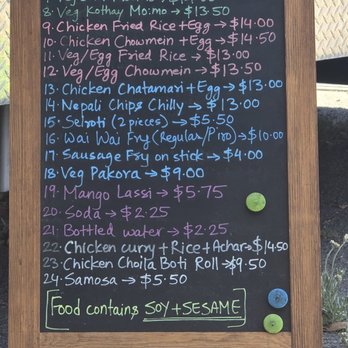 8. Veg Kothay Mo:mo → $13.50
9. Chicken Fried Rice + Egg → $14.00
10. Chicken Chowmein + Egg → $14.50
11. Veg/Egg Fried Rice → $13.00
12. Veg/Egg Chowmein → $13.50
13. Chicken Chatamari + Egg → $13.00
14. Nepali Chips Chilly → $13.00
15. Selroti (2 pieces) → $5.50
16. Wai Wai Fry (Regular/Piro) → $10.00
17. Sausage Fry on stick → $4.00
18. Veg Pakora → $9.00
19. Mango Lassi → $5.75
20. Soda → $2.25
21. Bottled water → $2.25
22. Chicken curry + Rice + Achar → $14.50
23. Chicken Choila Boti Roll → $9.50
24. Samosa → $5.50
[Food contains SOY + SESAME]